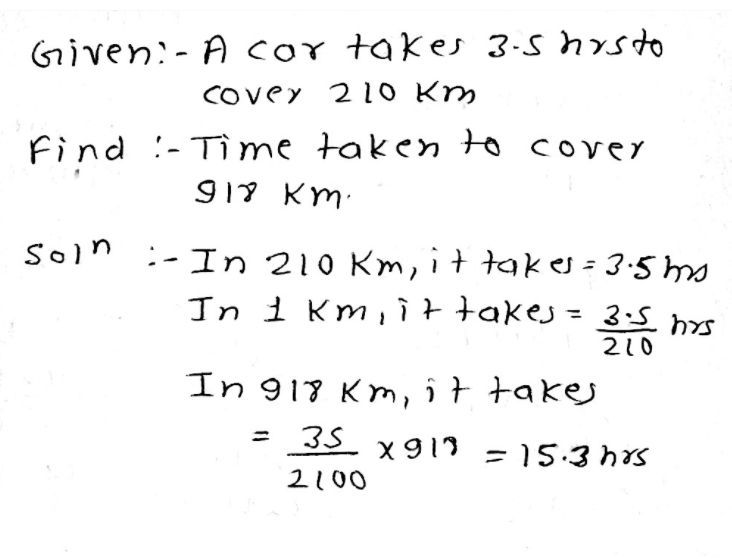 Given:- A car takes 3.5 hrs to
cover 210 Km
Find :- Time taken to cover
918 Km.
Soln :- In 210 Km, it takes = 3.5 hrs
In 1 Km, it takes = 3.5/210 hrs
In 918 Km, it takes
= 35/2100 x 918 = 15.3 hrs